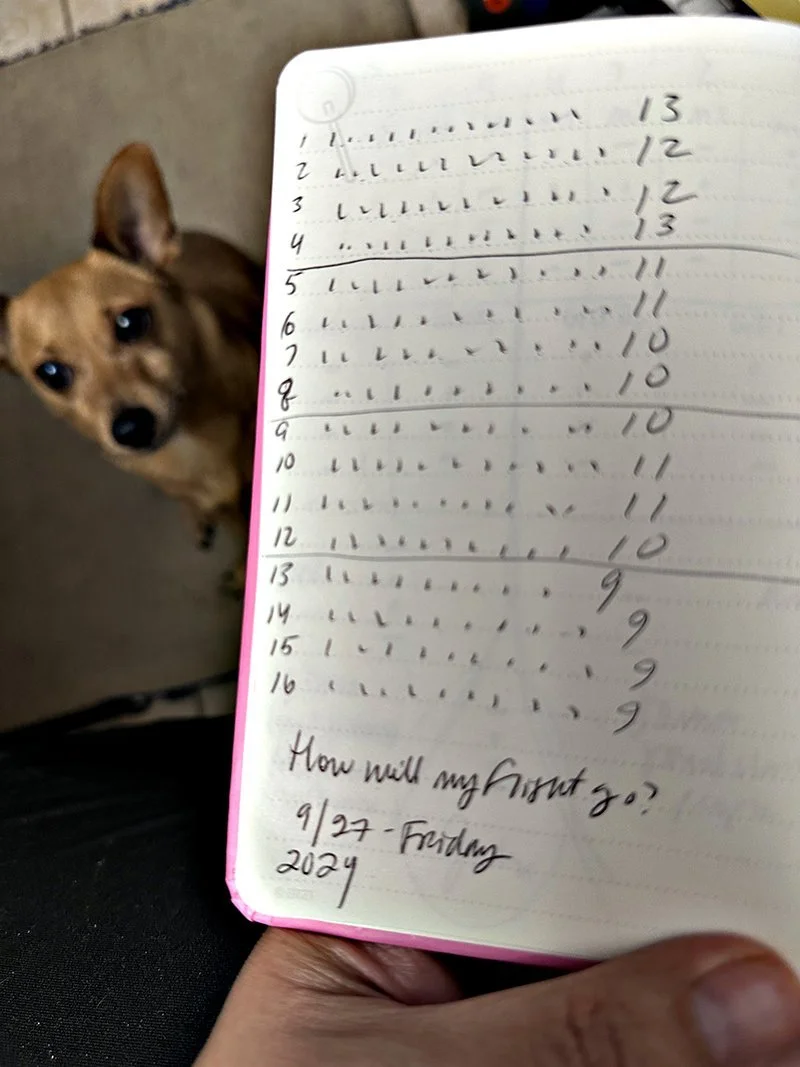 1 13
2 12
3 12
4 13
5 11
6 11
7 10
8 10
9 10
10 11
11 11
12 10
13 9
14 9
15 9
16 9
How will my flight go?
9/27 - Friday
2024